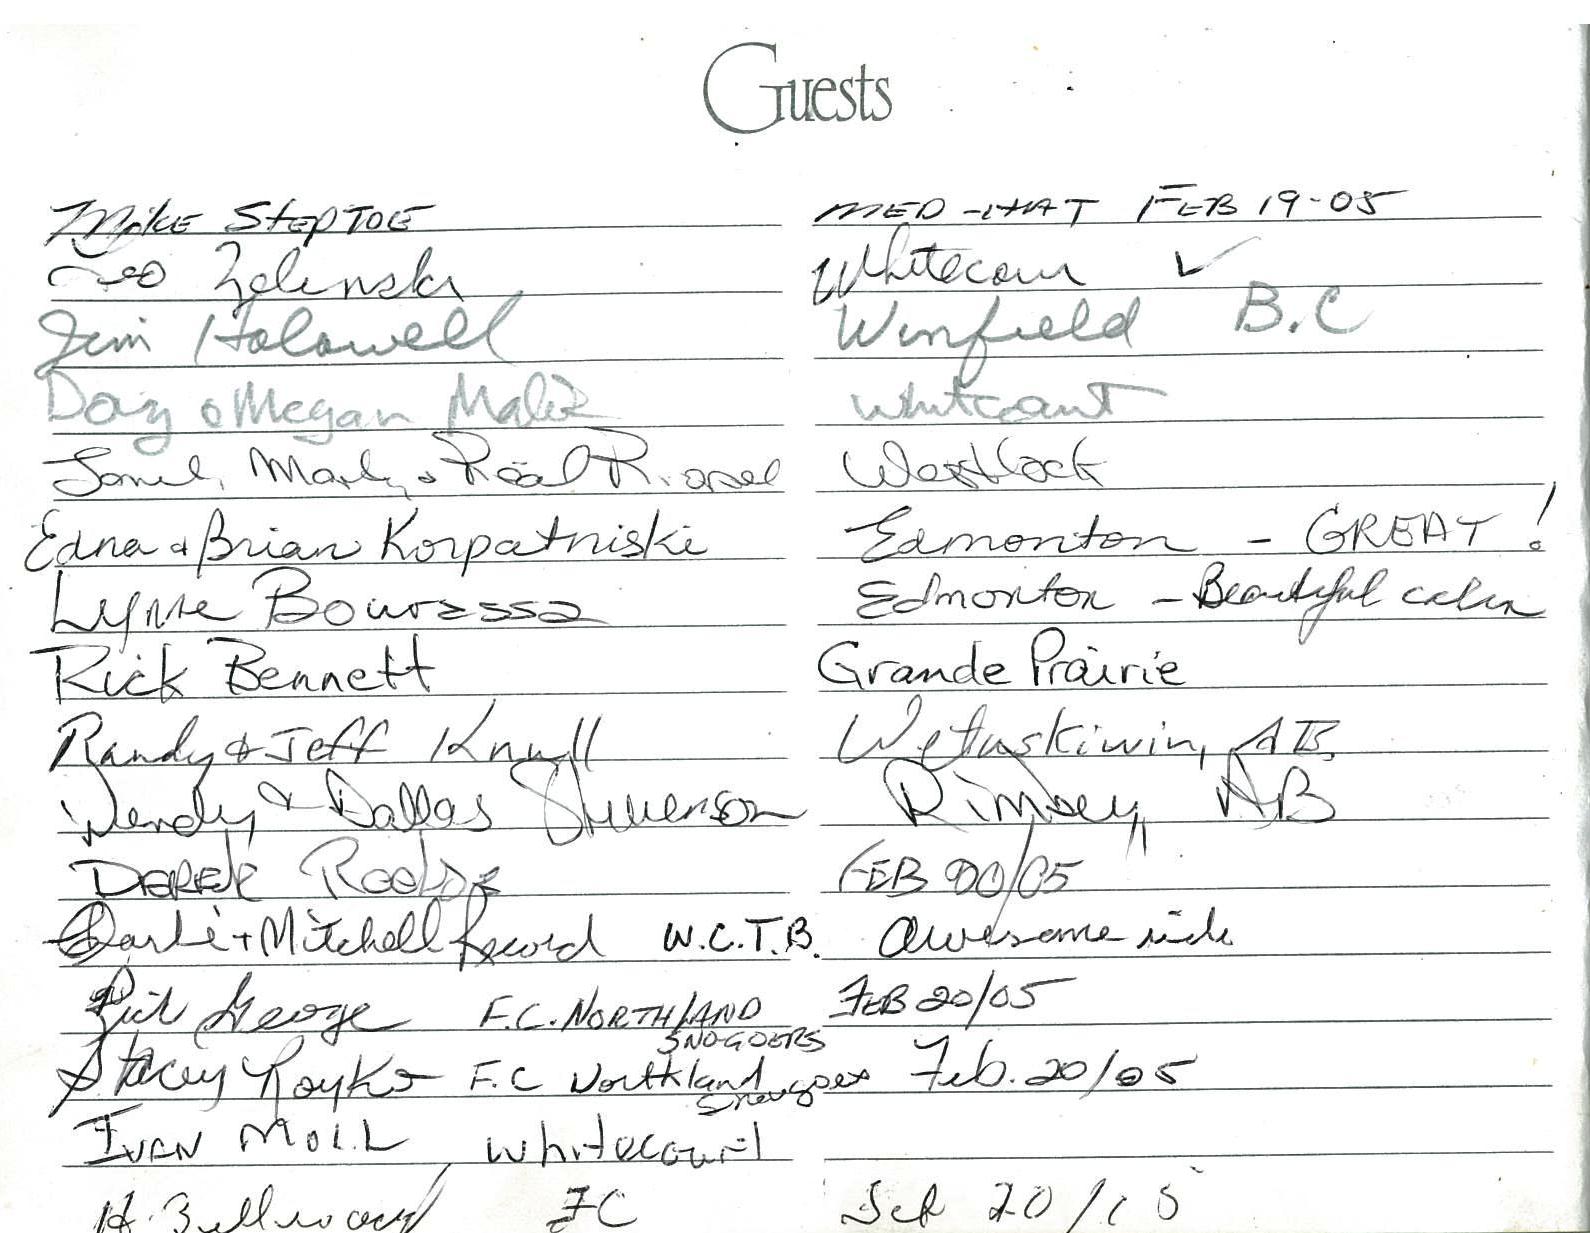 Guests
Mike Steptoe MED-HAT FEB 19-05
Leo Zelinski Whitecourt ✓
Jim Holowell Winfield B.C
Doug & Megan Whitcourt
Marly & Réal Westlock
Edna & Brian Korpatniski Edmonton - GREAT!
Lynne Bourassa Edmonton - Beautiful cabin
Rick Bennett Grande Prairie
Randy & Jeff Knull Wetaskiwin, AB
Wendy & Dallas Stevenson Rimbey, AB
DEREK FEB 20/05
+ Mitchell Record W.C.T.B. awesome ride
George F.C. NORTHLAND SNO-GOERS FEB 20/05
Stacey Royko F.C Northland Snowgoers Feb. 20/05
IVAN MOLL Whitecourt
H. FC 20/05